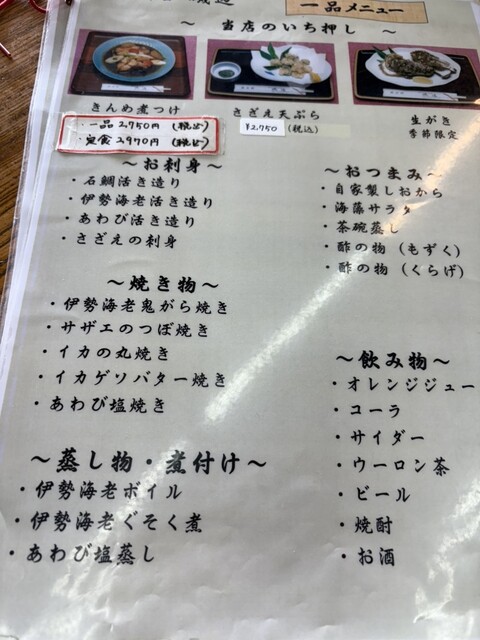 一品メニュー
～ 当店のいち押し ～
きんめ煮つけ
・一品 2,750円 (税込)
・定食 2,970円 (税込)
さざえ天ぷら
¥2,750 (税込)
生がき
季節限定
～お刺身～
・石鯛活き造り
・伊勢海老活き造り
・あわび活き造り
・さざえの刺身
～おつまみ～
・自家製しおから
・海藻サラダ
・茶碗蒸し
・酢の物 (もずく)
・酢の物 (くらげ)
～焼き物～
・伊勢海老鬼がら焼き
・サザエのつぼ焼き
・イカの丸焼き
・イカゲソバター焼き
・あわび塩焼き
～飲み物～
・オレンジジュー
・コーラ
・サイダー
・ウーロン茶
・ビール
・焼酎
・お酒
～蒸し物・煮付け～
・伊勢海老ボイル
・伊勢海老ぐそく煮
・あわび塩蒸し